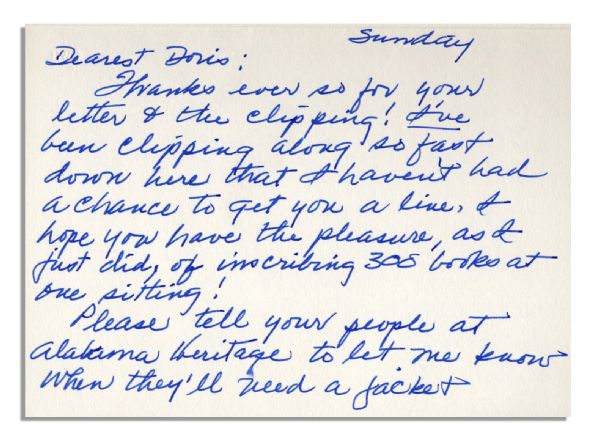 Sunday
Dearest Doris:
Thanks ever so for your
letter & the clipping! I've
been clipping along so fast
down here that I haven't had
a chance to get you a line. I
hope you have the pleasure, as I
just did, of inscribing 305 books at
one sitting!
Please tell your people at
Alabama Heritage to let me know
when they'll need a jacket